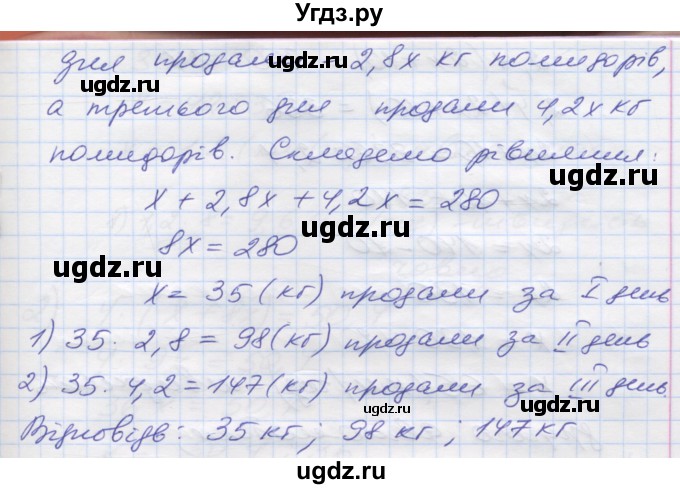 Угдз.ру
дня продали – 2,8х кг помидорів,
а третього дня – продали 4,2х кг
помидорів. Складемо рівняння:
х + 2,8х + 4,2х = 280
8х = 280
х = 35 (кг) продали за I день
1) 35 · 2,8 = 98 (кг) продали за II день
2) 35 · 4,2 = 147 (кг) продали за III день
Відповідь: 35 кг; 98 кг; 147 кг
uqdz.ru
uqdz.ru
uqdz.ru
uqdz.ru
uqdz.ru
uqdz.ru
uqdz.ru
uqdz.ru
uqdz.ru
uqdz.ru